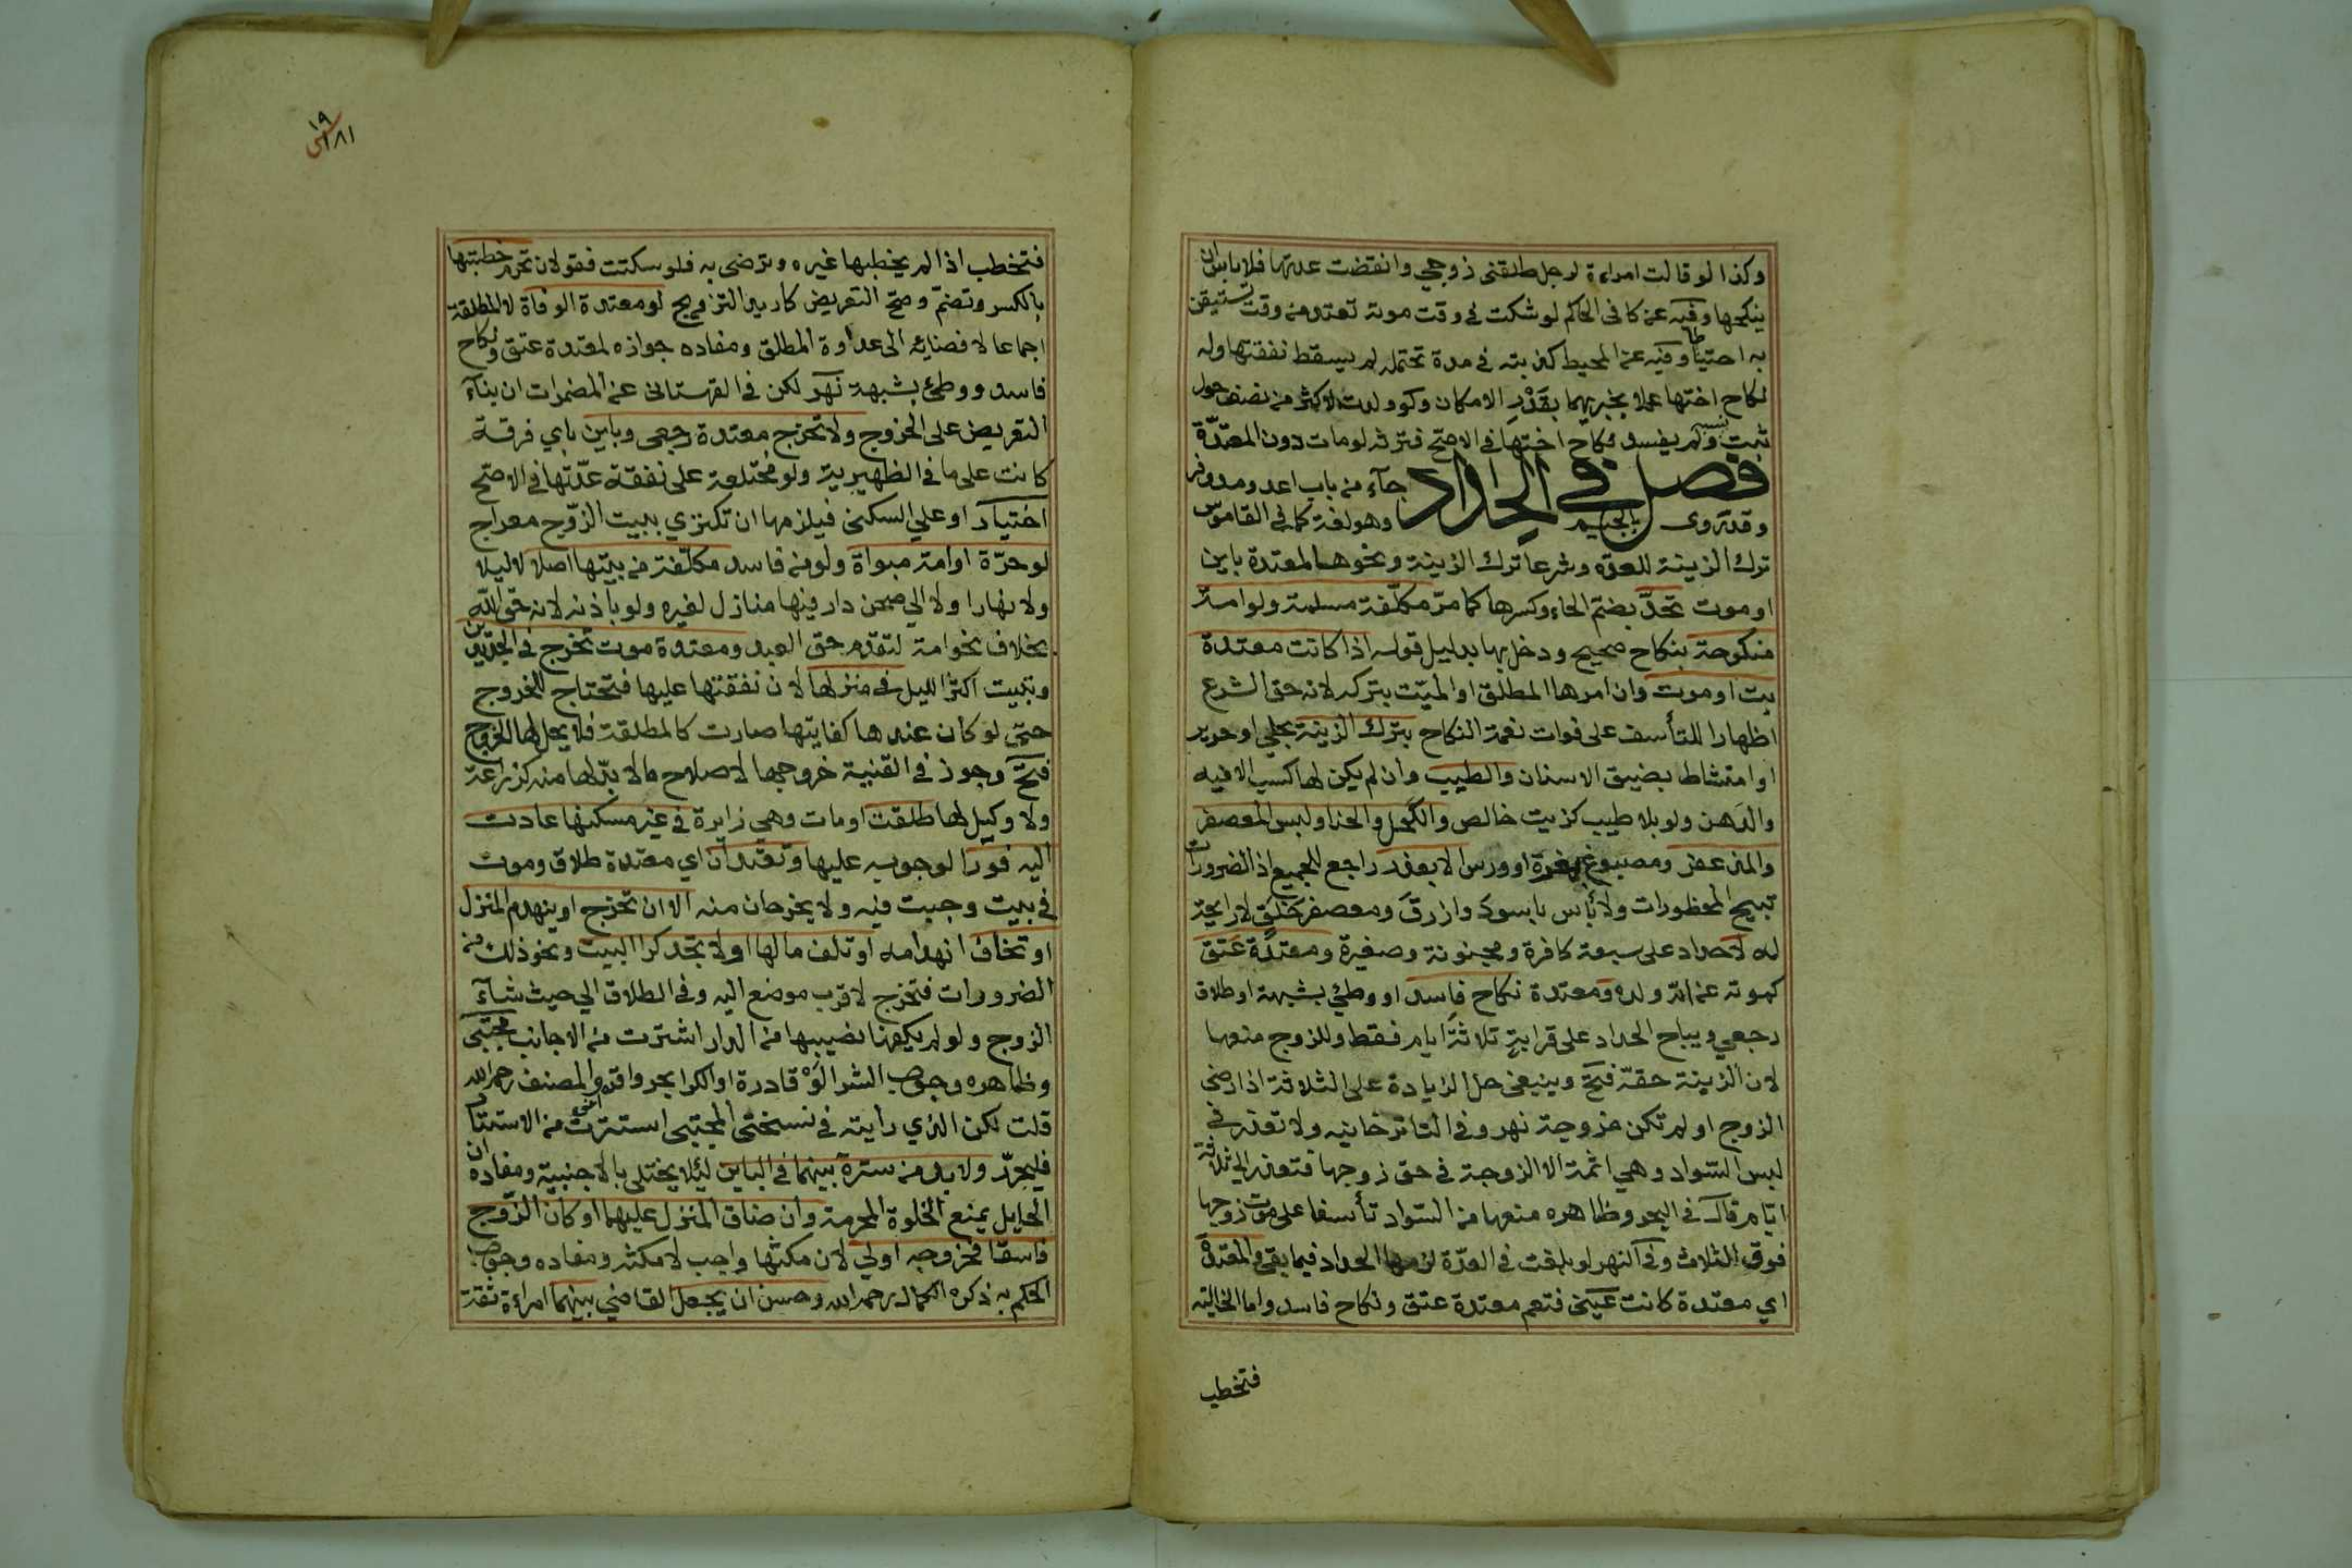 وكذا لو قالت امراءة لرجل طلقني زوجي وانقضت عدتها فلا باس ان
ينكحها وفيه عن كافي الحاكم لو شكت في وقت موته تعتد من وقت تستيقن
به احتياطا وفيه عن المحيط كذبته في مدة تحتمله لم يسقط نفقتها وله
نكاح اختها عملا بخبريهما بقدر الامكان ولو ولدت لاكثر من نصف حول
ثبت نسبه ولم يفسد نكاح اختها في الاصح فترثه لو مات دون المعتدة
فصل في الحداد جآء من باب اعد ومد وفر
وقد روى بالجيم وهو لغة كما في القاموس
ترك الزينة للعدة وشرعا ترك الزينة ونحوها لمعتدة باين
او موت تحد بضم الحاء وكسرها كما مر مكلفة مسلمة ولو امة
منكوحة بنكاح صحيح ودخل بها بدليل قوله اذا كانت معتدة
بت او موت وان امرها المطلق او الميت بتركه لانه حق الشرع
اظهارا للتأسف على فوات نعمة النكاح بترك الزينة بحلي او حرير
او امتشاط بضيق الاسنان والطيب وان لم يكن لها كسب الا فيه
والدهن ولو بلا طيب كزيت خالص والكحل والحنا ولبس المعصفر
والمزعفر ومصبوغ بمغرة او ورس الا بعذر راجع للجميع اذ الضرورات
تبيح المحظورات ولا بأس باسود وازرق ومعصفر خلق لا رايحة
له لا حداد على سبعة كافرة ومجنونة وصغيرة ومعتدة عتق
كموته عن ام ولده ومعتدة نكاح فاسد او وطئ بشبهة او طلاق
رجعي ويباح الحداد على قرابة ثلاثة ايام فقط وللزوج منعها
لان الزينة حقه فتح وينبغي حل الزيادة على الثلاثة اذا رضي
الزوج او لم تكن مزوجة نهر وفي التاترخانيه ولا تعذر في
لبس السواد وهي اثمة الا الزوجة في حق زوجها فتعذر الى ثلاثة
ايام قال في البحر وظاهره منعها من السواد تأسفا على موت زوجها
فوق الثلاث وفي النهر لو بلغت في العدة لزمها الحداد فيما بقي والمعتدة
اي معتدة كانت عيني فتعم معتدة عتق ونكاح فاسد واما الخالية
فتخطب
١٩
١٨١
فتخطب اذا لم يخطبها غيره وترضى به فلو سكتت فقولان تحرم خطبتها
بالكسر وتضم وصح التعريض كاريد التزويج لو معتدة الوفاة لا المطلقة
اجماعا لافضائه الى عداوة المطلق ومفاده جوازه لمعتدة عتق ونكاح
فاسد ووطئ بشبهة نهر لكن في القهستاني عن المضمرات ان بنآء
التعريض على الخروج ولا تخرج معتدة رجعي وباين باي فرقة
كانت على ما في الظهيرية ولو مختلعة على نفقة عدتها في الاصح
اختيار او على السكنى فيلزمها ان تكتري بيت الزوج معراج
لو حرة او امة مبواة ولو من فاسد مكلفة من بيتها اصلا لا ليلا
ولا نهارا ولا الي صحن دار فيها منازل لغيره ولو باذنه لانه حق الله
بخلاف نحو امة لتقدم حق العبد ومعتدة موت تخرج في الجديدين
وتبيت اكثر الليل في منزلها لان نفقتها عليها فتحتاج للخروج
حتى لو كان عندها كفايتها صارت كالمطلقة فلا يحل لها الخروج
فتح وجوز في القنية خروجها لاصلاح ما لا بد لها منه كزراعة
ولا وكيل لها طلقت او مات وهي زايرة في غير مسكنها عادت
اليه فورا لوجوبه عليها وتعتدان اي معتدة طلاق وموت
في بيت وجبت فيه ولا يخرجان منه الا ان تخرج او ينهدم المنزل
او تخاف انهدامه او تلف مالها او لا تجد كرا البيت ونحو ذلك من
الضرورات فتخرج لاقرب موضع اليه وفي الطلاق الي حيث شآء
الزوج ولو لم يكفها نصيبها من الدار اشترت من الاجانب مجتبى
وظاهره وجوب الشرا لو قادرة او الكرا بحر واقره المصنف رحمه الله
قلت لكن الذي رايته في نسختي المجتبى استترت من الاستتار
فليحرر ولا بد من سترة بينهما في الباين ليلا يختلى بالاجنبية ومفاده ان
الحايل يمنع الخلوة المحرمة وان ضاق المنزل عليهما او كان الزوج
فاسقا فخروجه اولي لان مكثها واجب لا مكثه ومفاده وجوب
الحكم به ذكره الكمال رحمه الله وحسن ان يجعل القاضي بينهما امراءة ثقة